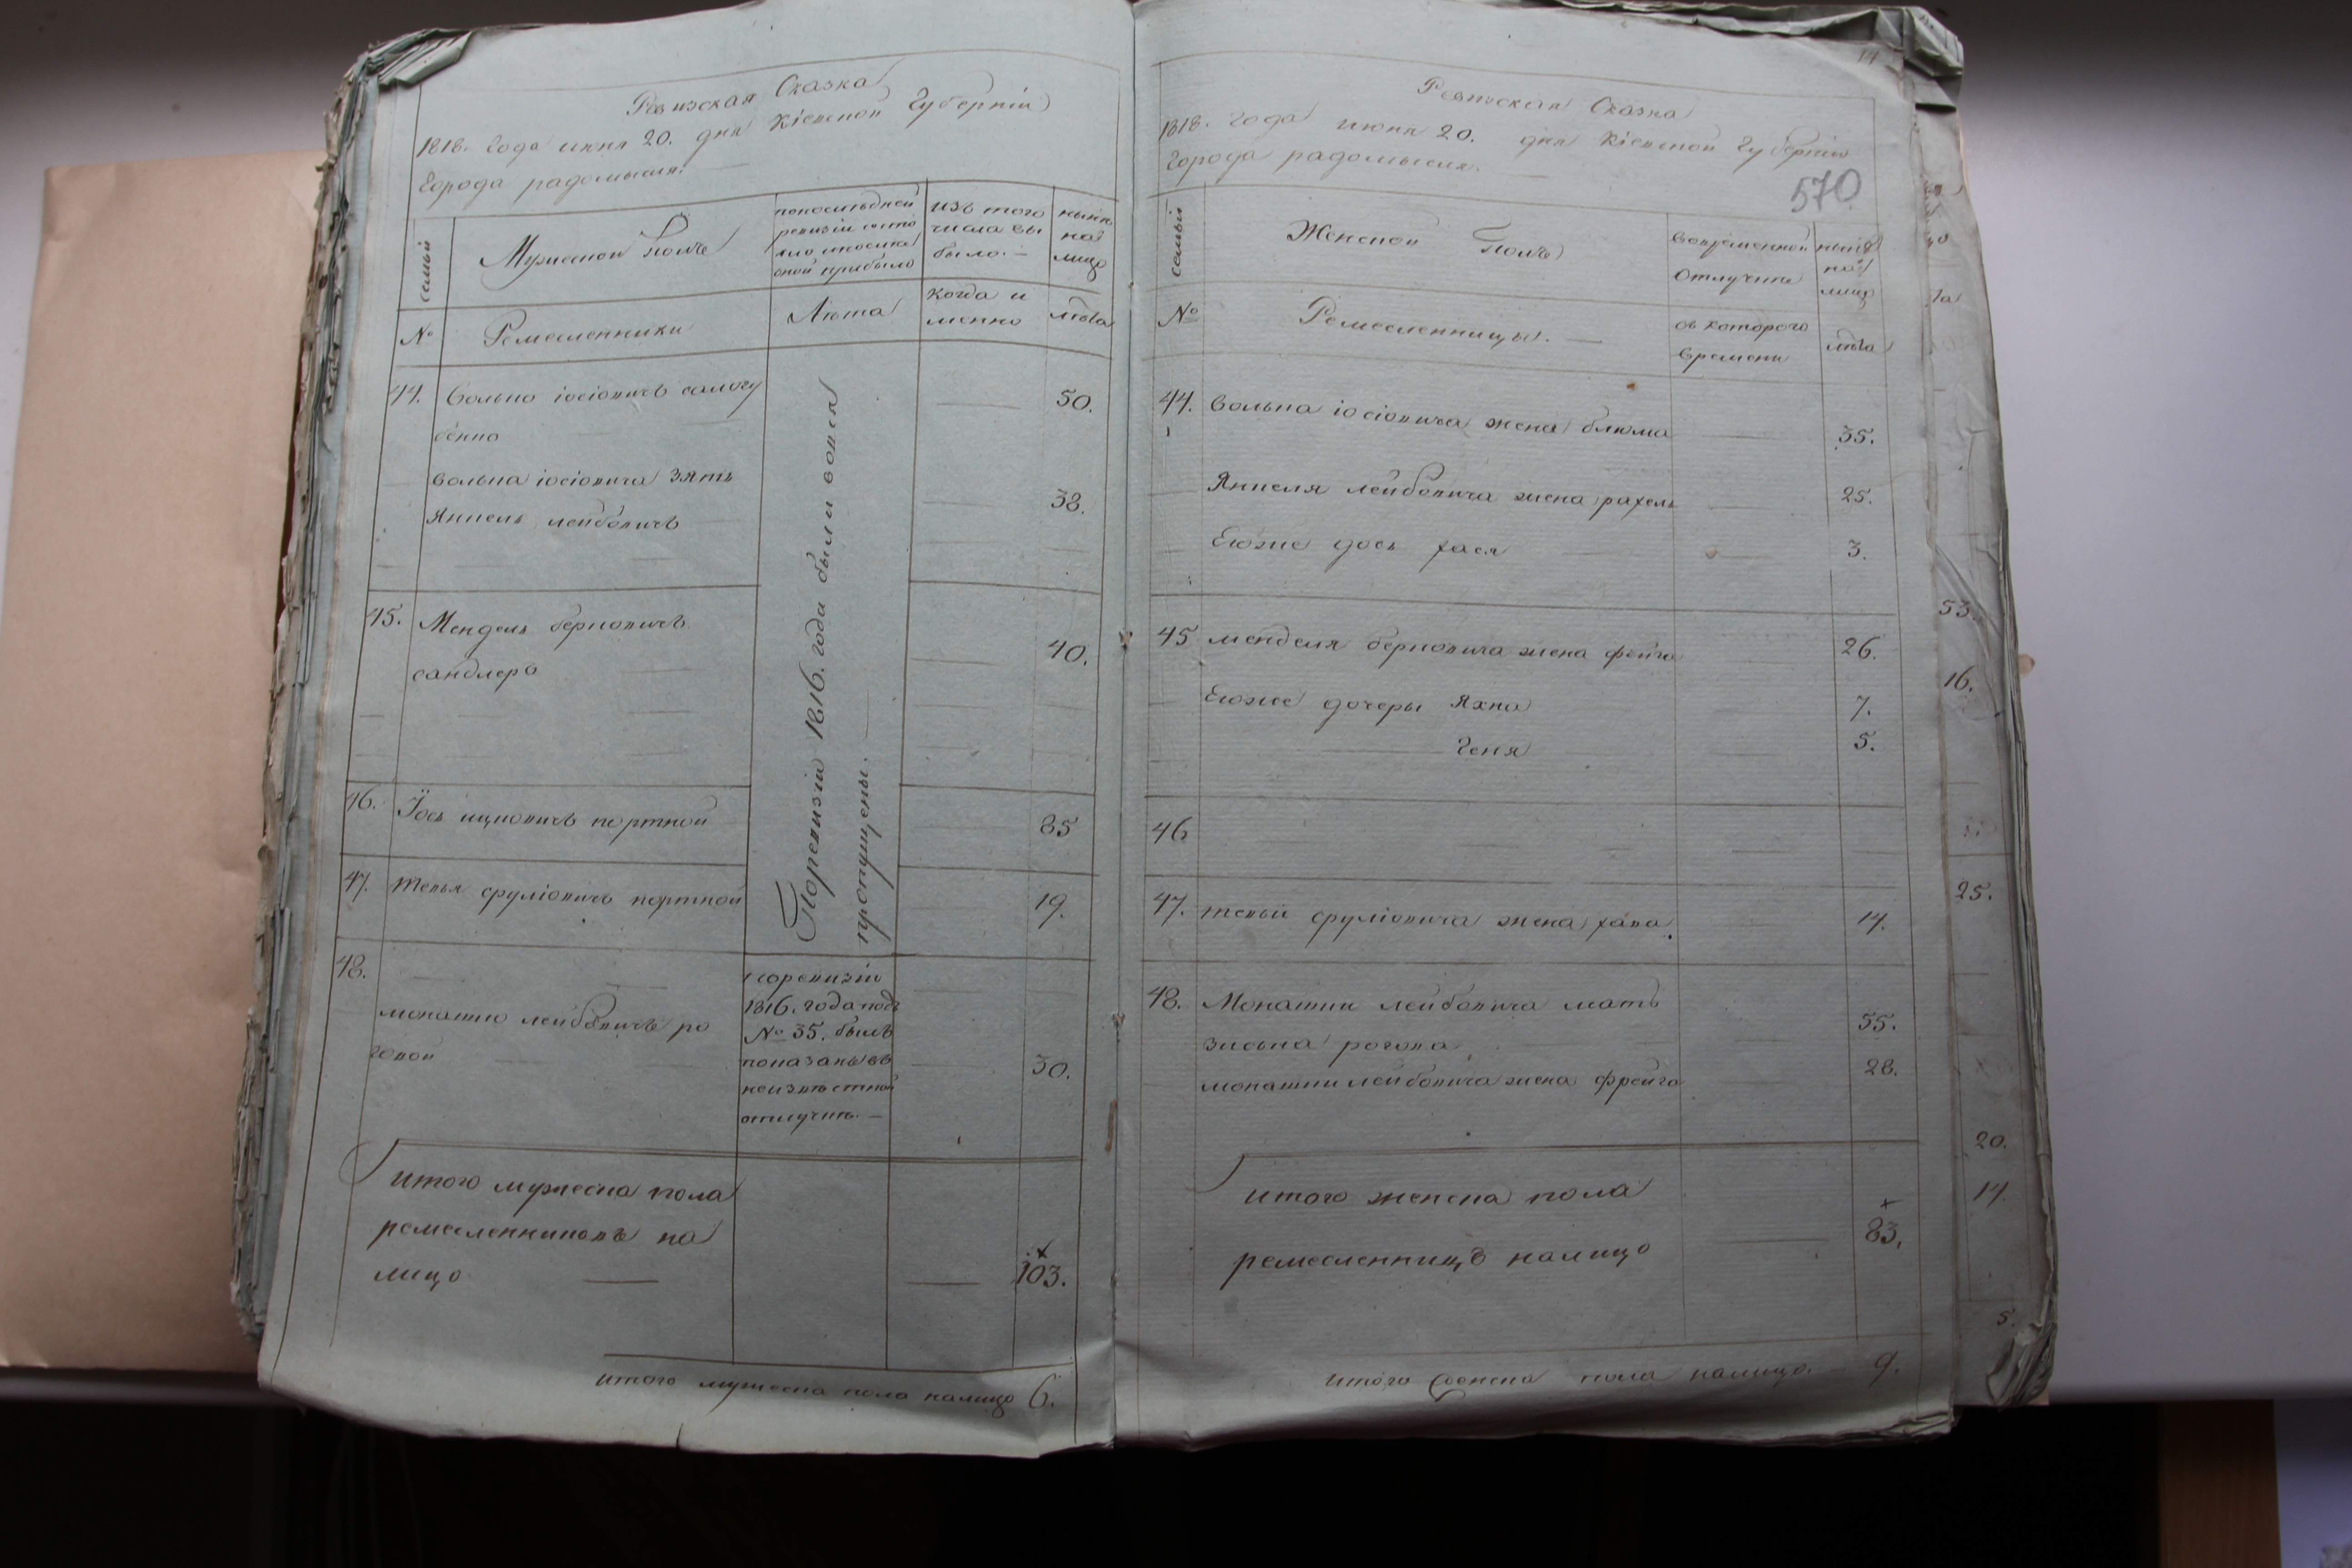 Ревизская Сказка
1818. года июня 20. дня Кіевской Губерніи
Города радомысля.
семьи
Мужеской Полъ
попоследней
ревизіи состо
яло ипосле
оной прибыло
изъ того
числа вы
было. —
ныне
на
лицо
№
Ремесленники
Лѣта
когда и
менно
лѣта
44. Волько іосіовичъ салогу
бенко
50.
волька іосіовича зять
Янкель лейбовичъ
38.
45. Мендель берковичъ
сандлеръ
40.
46. Іось ицковичъ портной
85
47. тевья сруліовичъ портной
19.
Поревизіи 1816. года были вовся
пропущены. —
48.
монашко лейбовичъ ро
говой
поревизіи
1816. года подъ
№ 35. былъ
показанъ въ
неизвѣстной
отлучкѣ. —
30.
итого мужеска пола
ремесленниковъ на
лицо — 103.
итого мужеска пола налицо 6.
14
Ревизская Сказка
1818. года июня 20. дня Кіевской Губерніи
Города радомысля.
570
семьи
Женской Полъ
вовременной
отлучке
ныне
на
лицо
№
Ремесленницы. —
съ которого
времени
лѣта
44. Волька іосіовича жена блюма 35.
Янкеля лейбовича жена рахель 25.
Егоже дочь хася 3.
45 менделя берковича жена фейга 26.
Егоже дочеры Яхна 7.
Геня 5.
46
47. тевьи сруліовича жена хава. 17.
48. Монашки лейбовича мать
зиська рогова 55.
монашки лейбовича жена фрейга 28.
итого женска пола
ремесленницъ налицо — 83,
итого женска пола налицо. — 9.
53.
16.
25.
20.
14.
5.